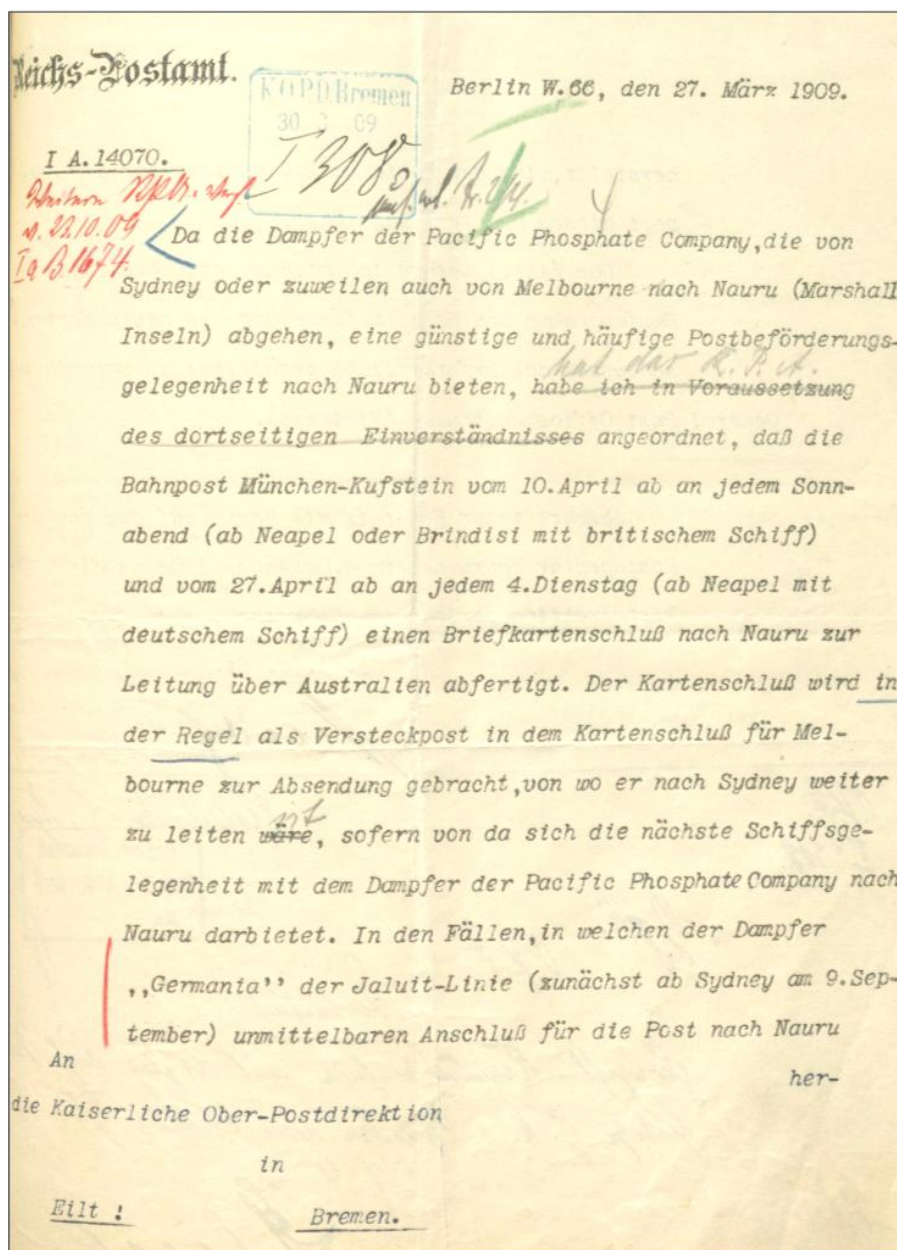 Reichs-Postamt.
Berlin W.66, den 27. März 1909.
K.O.P.D. Bremen
30 3 09
I 308
I A.14070.
v. 23.10.09
Da die Dampfer der Pacific Phosphate Company,die von
Sydney oder zuweilen auch von Melbourne nach Nauru (Marshall
Inseln) abgehen, eine günstige und häufige Postbeförderungs-
hat das R.P.A.
gelegenheit nach Nauru bieten, habe ich in Voraussetzung
des dortseitigen Einverständnisses angeordnet, daß die
Bahnpost München-Kufstein vom 10.April ab an jedem Sonn-
abend (ab Neapel oder Brindisi mit britischem Schiff)
und vom 27.April ab an jedem 4.Dienstag (ab Neapel mit
deutschem Schiff) einen Briefkartenschluß nach Nauru zur
Leitung über Australien abfertigt. Der Kartenschluß wird in
der Regel als Versteckpost in dem Kartenschluß für Mel-
bourne zur Absendung gebracht,von wo er nach Sydney weiter
ist
zu leiten wäre, sofern von da sich die nächste Schiffsge-
legenheit mit dem Dampfer der Pacific Phosphate Company nach
Nauru darbietet. In den Fällen,in welchen der Dampfer
,,Germania'' der Jaluit-Linie (zunächst ab Sydney am 9.Sep-
tember) unmittelbaren Anschluß für die Post nach Nauru
her-
An
die Kaiserliche Ober-Postdirektion
in
Eilt !
Bremen.